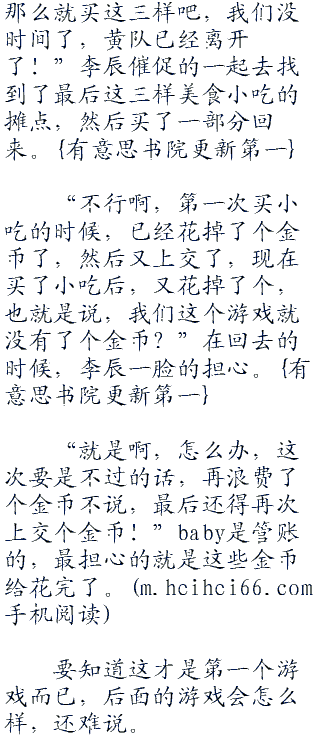 那么就买这三样吧，我们没
时间了，黄队已经离开
了！”李辰催促的一起去找
到了最后这三样美食小吃的
摊点，然后买了一部分回
来。{有意思书院更新第一}
“不行啊，第一次买小
吃的时候，已经花掉了个金
币了，然后又上交了，现在
买了小吃后，又花掉了个，
也就是说，我们这个游戏就
没有了个金币？”在回去的
时候，李辰一脸的担心。{有
意思书院更新第一}
“就是啊，怎么办，这
次要是不过的话，再浪费了
个金币不说，最后还得再次
上交个金币！”baby是管账
的，最担心的就是这些金币
给花完了。(m.hcihci66.com
手机阅读)
要知道这才是第一个游
戏而已，后面的游戏会怎么
样，还难说。